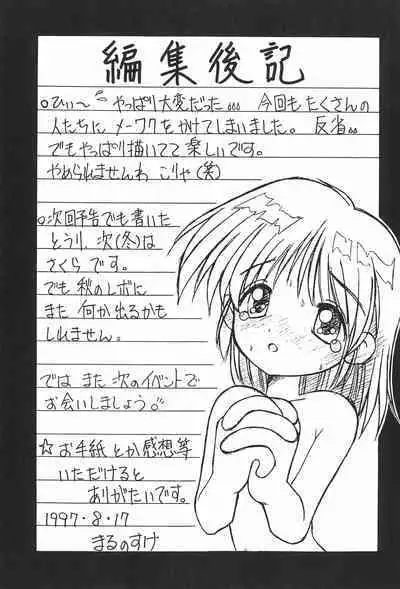 編集後記
○ひぃ〜 やっぱり大変だった。。。 今回もたくさんの
人たちに メーワクをかけてしまいました。 反省。。。
でもやっぱり描いてて楽しいです。
やめられませんわ こりゃ(笑)
○次回予告でも書いた
とうり、次(冬)は
さくらです。
でも 秋のレボに
また 何か出るかも
しれません。
では また 次のイベントで
お会いしましょう。
☆お手紙とか感想等
いただけると
ありがたいです。
1997・8・17
まるのすけ